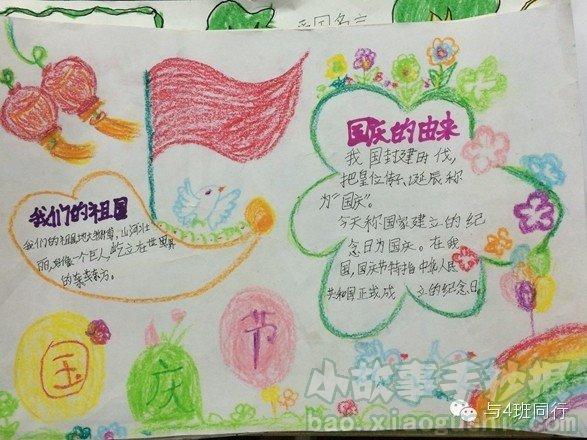 爱国名言
国庆的由来
我国封建时代,
把皇位传、诞辰称
为“国庆”。
今天称国家建立的纪
念日为国庆。在我
国,国庆节特指中华人民
共和国正式成 立的纪念日。
我们的祖国
我们的祖国地大物博,山河壮
丽,好像一个巨人,屹立在世界
的东方。
国
庆
节
小故事手抄报
bao.xiaogushi
与4班同行